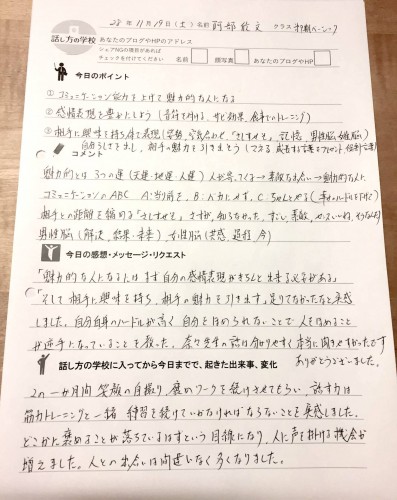 28年11月19日(土) 名前 阿部 クラス 初期ベーシック
話し方の学校 あなたのブログやHPのアドレス
シェアNGの項目があれば
チェックを付けてください 名前 顔写真 あなたのブログやHP
今日のポイント
① コミュニケーション能力を上げて魅力的な人になる
② 感情表現を豊かにしよう(音符で付ける、サビ効果、食事でトレーニング)
③ 相手に興味を持ち体で表現(笑顔、空気合わせ、「さしすせそ」、記憶、男性脳・女性脳)
自分らしさを出し、相手の魅力を引き出そう(できる 成長する言葉をプレゼント、
コメント
魅力的とは 3つの運(天運・地運・人運) 人が寄ってくる→素敵な出会い→魅力的な人
コミュニケーションのABC A:当り前を、B:バカにせず、C:ちゃんとやる(幸せのハードルを下げる)
相手との距離を縮める「さしすせそ」さすが、知らなかった、すごい、素敵、かっこいいね、そうなんだ
男性脳(解決、結果・未来)、女性脳(共感、過程、今)
今日の感想・メッセージ・リクエスト
「魅力的な人になるには まず自分の感情表現がきちんと出来る必要がある」
「そして相手に興味を持ち、相手の魅力を引き出す」足りてなかったなと実感
しました。自分自身のハードルが高く 自分をほめられないことで 人をほめること
が苦手になっていることを救った、 の話は分りやすく本当に聞きやすかったです
ありがとうございました。
話し方の学校に入ってから今日までで、起きた出来事、変化
この一か月間 笑顔の自撮り、褒めワークを続けさせてもらい、話す力は
筋力トレーニングと一緒 練習を続けていかなければならないことを実感しました。
どこかに褒めることが落ちているはずという目線になり、人に声を掛ける機会が
増えました。人との出会いは間違いなく多くなりました。